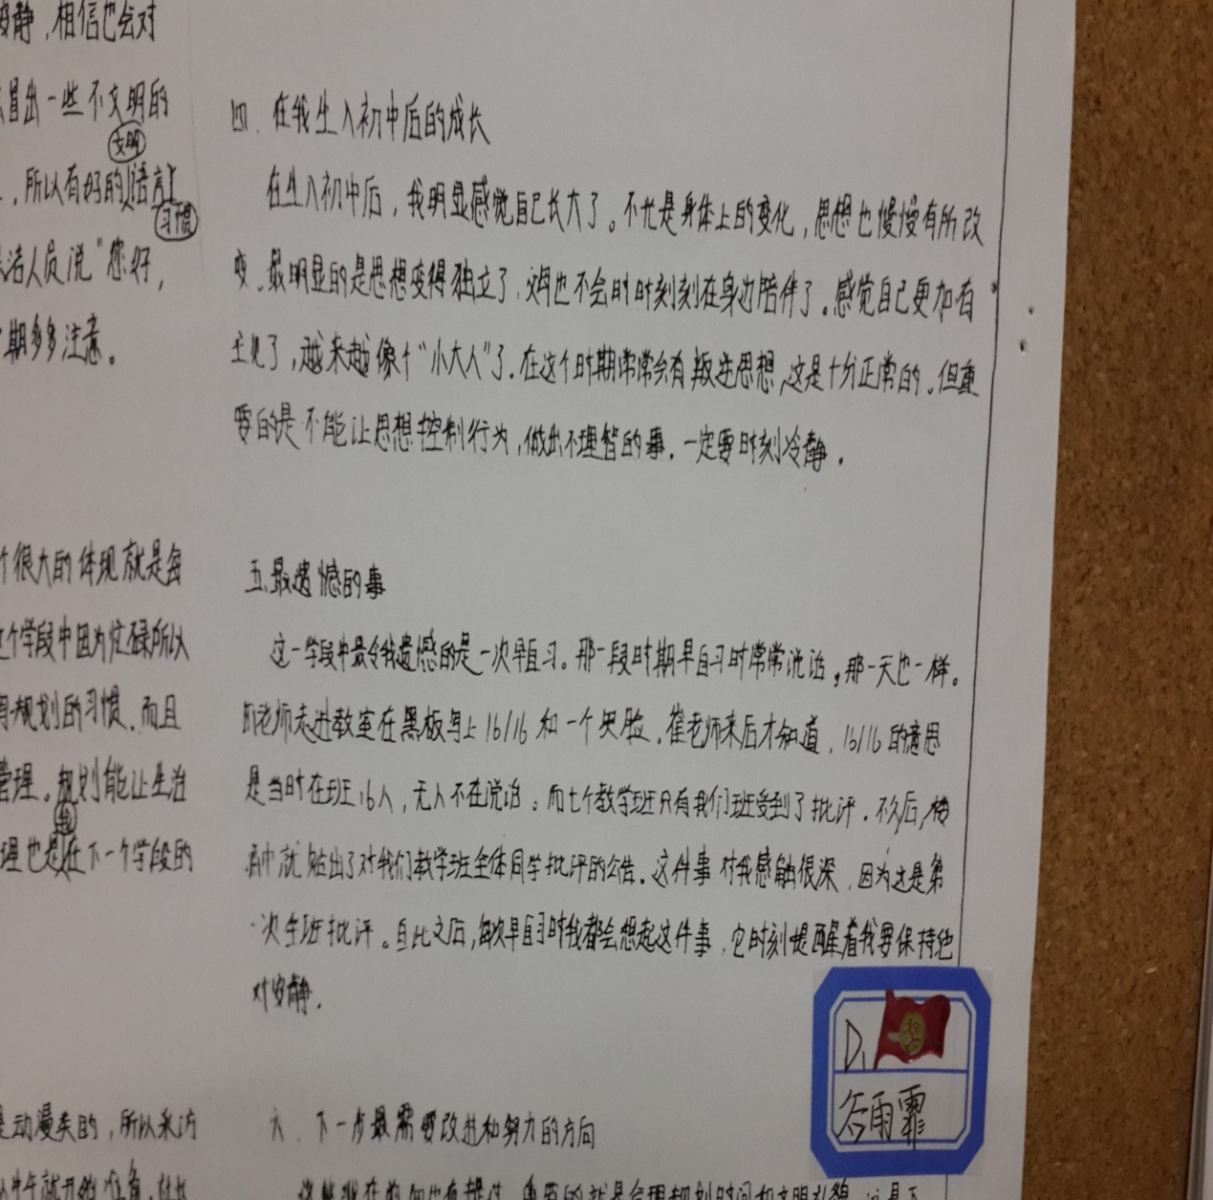 静，相信也会对
冒出一些不文明的
文明
，所以有好的语言
习惯
洁人员说“您好，
期多多注意。
个很大的体现就是每
个学段中因为忙碌所以
规划的习惯．而且
管理。规划能让生活
理也是在下一个学段的
是动漫类的，所以采访
四．在我生入初中后的成长
在生入初中后，我明显感觉自己长大了。不光是身体上的变化，思想也慢慢有所改
变．最明显的是思想变得独立了．父母也不会时时刻刻在身边陪伴了。感觉自己更加有
主见了，越来越像个“小大人”了．在这个时期常常会有叛逆思想，这是十分正常的．但重
要的是不能让思想控制行为，做出不理智的事．一定要时刻冷静．
五．最遗憾的事
这一学段中最令我遗憾的是一次早自习。那一段时期早自习时常常说话，那一天也一样。
老师走进教室在黑板写上16/16和一个哭脸．崔老师来后才知道．16/16的意思
是当时在班16人，无人不在说话；而七个教学班只有我们班受到了批评．不久后，楼
道中就贴出了对我们教学班全体同学批评的公告。这件事对我感触很深，因为这是第
一次全班批评。自此之后，每次早自习时我都会想起这件事，它时刻提醒着我要保持绝
对安静．
六．下一步最需要改进和努力的方向
D1
谷雨霏